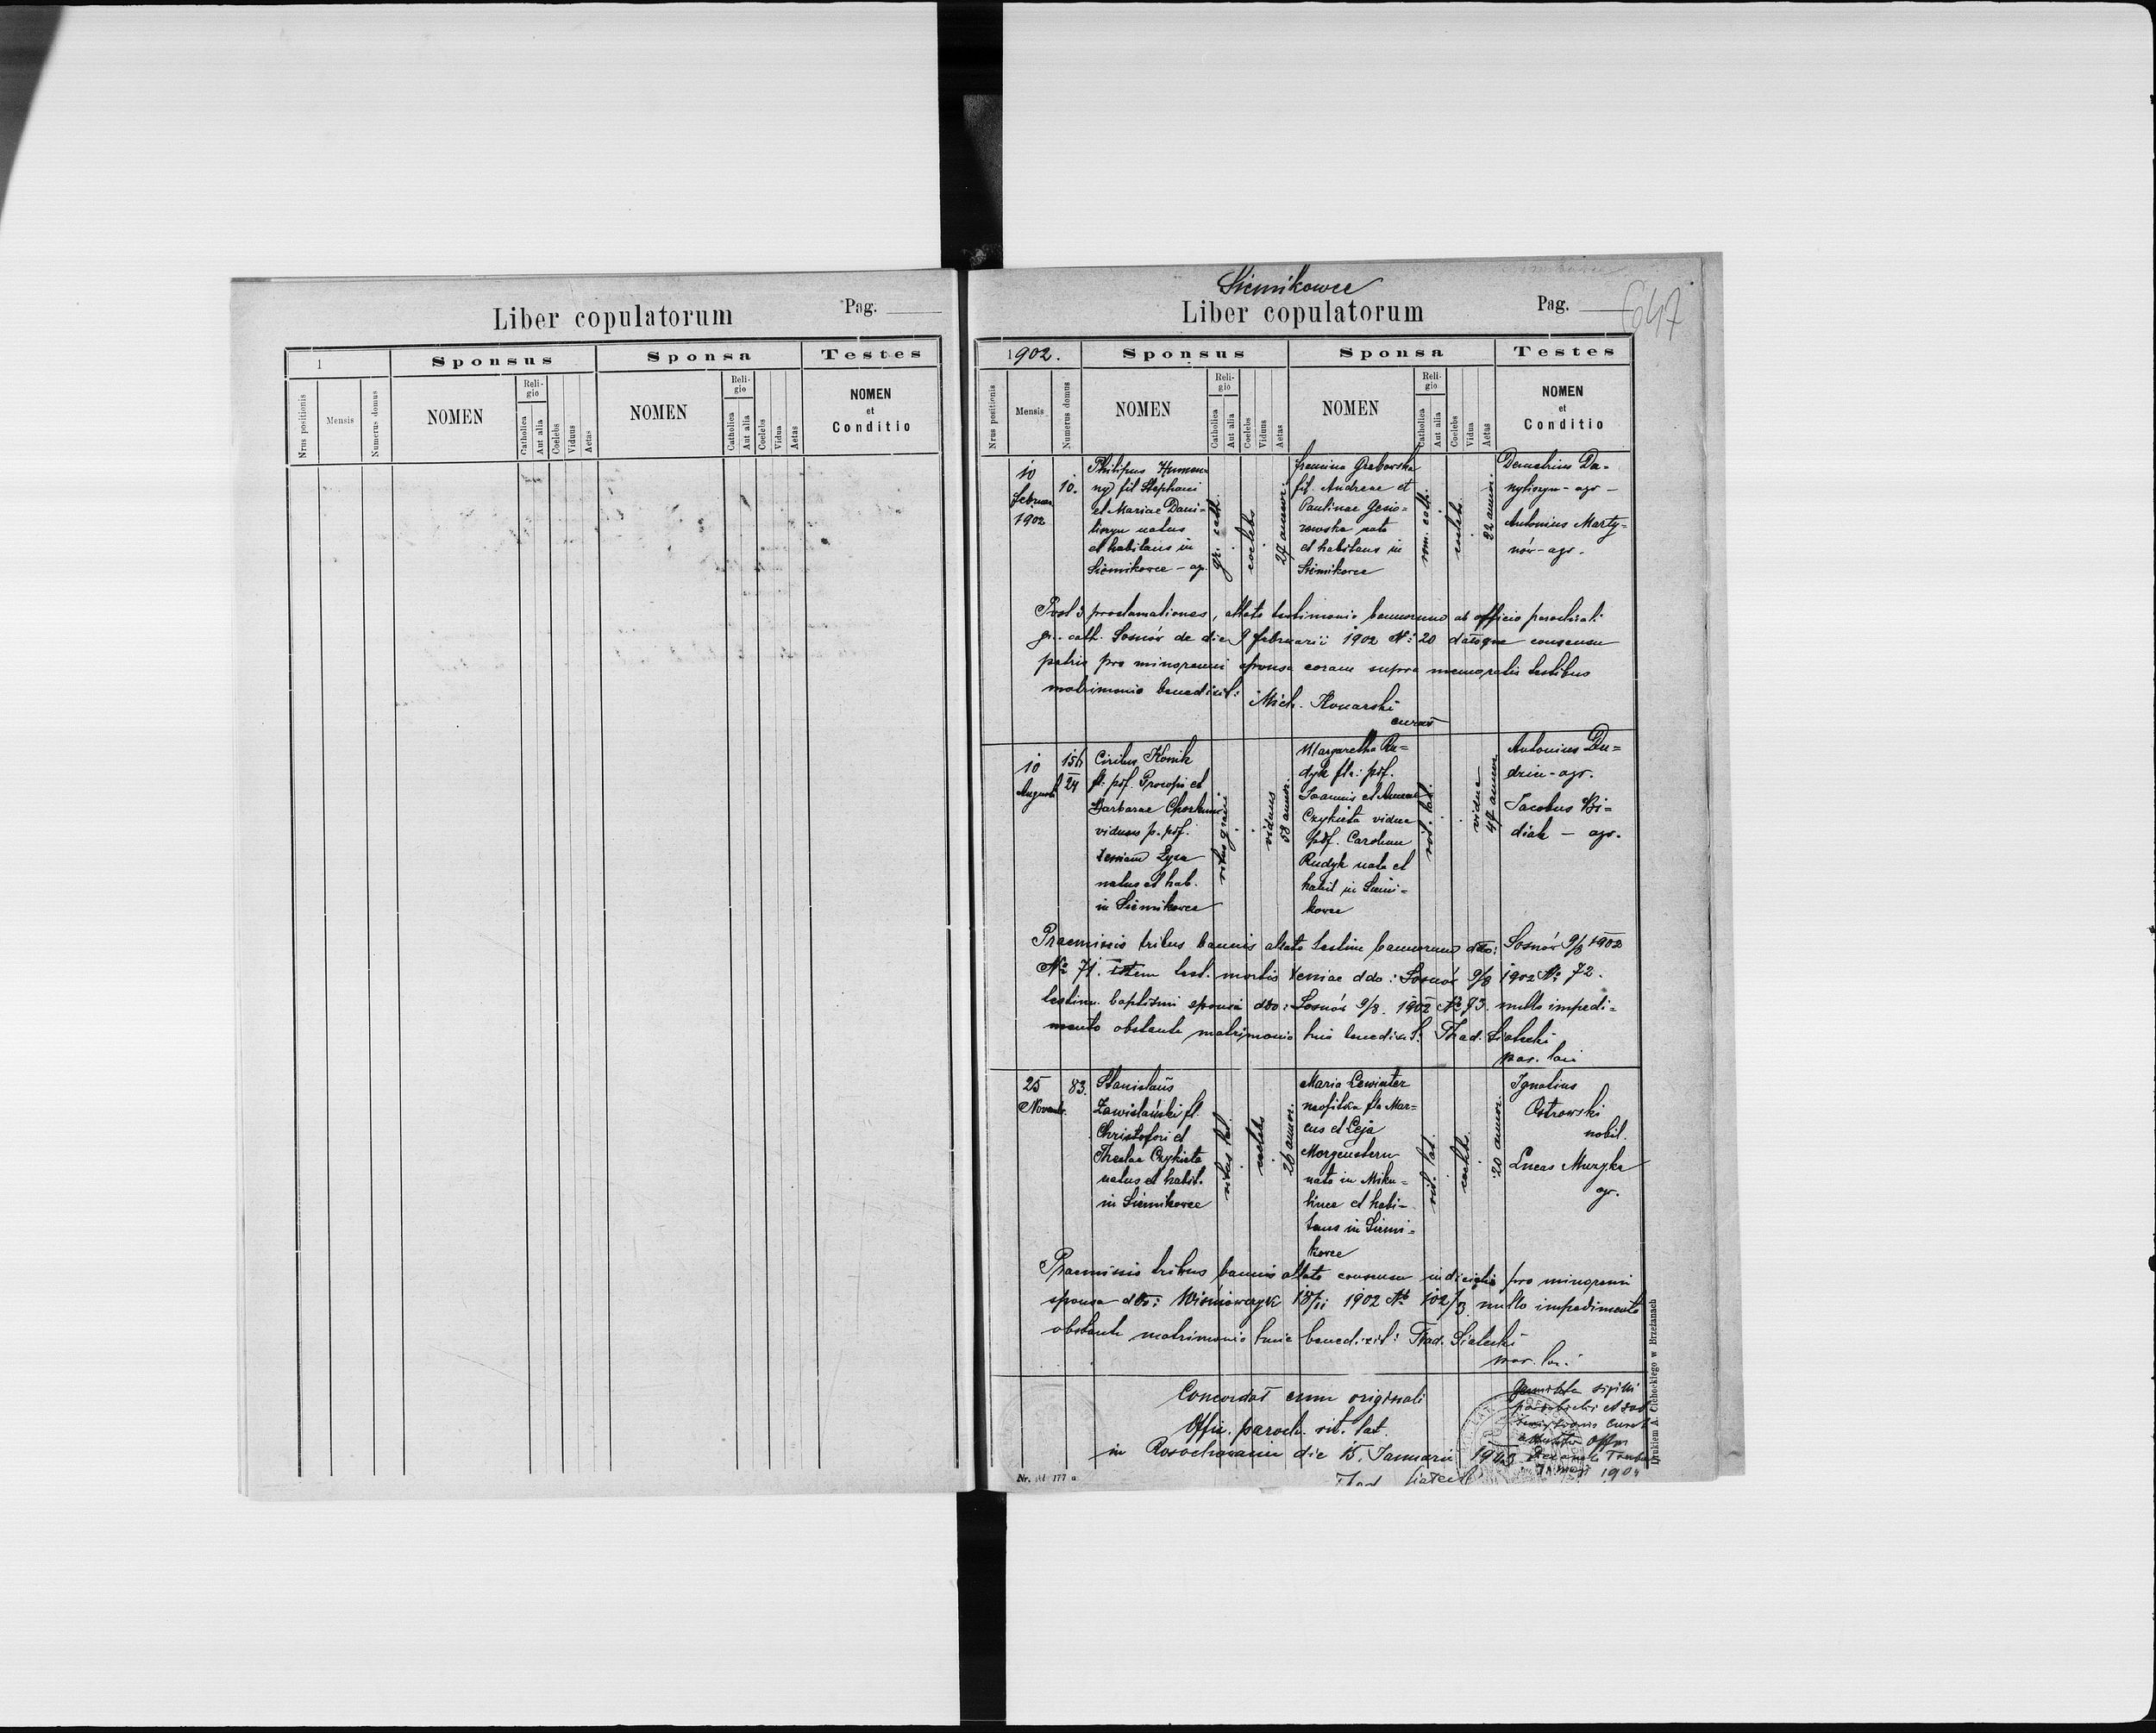 Liber copulatorum
Pag.
1
Sponsus
Sponsa
Testes
Nrus positionis
Mensis
Numerus domus
NOMEN
Reli-
gio
Catholica
Aut alia
Coelebs
Viduus
Aetas
NOMEN
Reli-
gio
Catholica
Aut alia
Coelebs
Vidua
Aetas
NOMEN
et
Conditio
Siemikowce
Liber copulatorum
Pag.
647
1902.
Sponsus
Sponsa
Testes
Nrus positionis
Mensis
Numerus domus
NOMEN
Reli-
gio
Catholica
Aut alia
Coelebs
Viduus
Aetas
NOMEN
Reli-
gio
Catholica
Aut alia
Coelebs
Vidua
Aetas
NOMEN
et
Conditio
10
Februar
1902
10.
Philipus
ny fil Stephani
et Mariae Dani-
natus
et habitans in
Siemikowce - agr.
gr. cath.
coelebs
27 annor.
Grabowska
fil. Andreae et
Paulinae Gesio-
rowska nata
et habitans in
Siemikowce
rom. cath.
coelebs
22 annor.
Demetrius Da-
- agr -
Antonius Marty-
nów - agr.
Post 3 proclamationes, allato testimonio bannorum ab officio parochiali
gr. cath. Sosnów de die 9 februarii 1902 N: 20 datoque consensu
patris pro minorenni sponsa coram supra memoratis testibus
matrimonio benedixit: Mich. Konarski
10
Augusti
24
Cirilus Konik
fl. pdf. Procopi et
Barbarae
viduus p. pdf.
natus et hab.
in Siemikowce
ritus graeci
viduus
58 annor.
Margaretha Ru=
dyk fla: pdf.
Joannis et Annae
Czykieta vidua
pdf. Caroluum
Rudyk nata et
habit in Siemi=
kowce
rit. lat.
vidua
47 annor.
Antonius Du=
- agr.
Jacobus Bi=
diak - agr.
Praemissis tribus bannis allato testim bannorum ddo: Sosnów 9/8 1902
No 71. item test. mortis Xeniae ddo: Sosnów 9/8 1902 No 72.
testim. baptismi sponsi ddo: Sosnów 9/8. 1902 No 73. nullo impedi=
mento obstante matrimonio huic benedixit: Thad. Sialecki
par. loci
25
Novembr.
83.
Stanislaus
Zawiślański fl.
Christofori et
Theclae Czykieta
natus et habit.
in Siemikowce
ritus lat.
coelebs
26 annor.
Maria Lewinter
neofitka fla Mar=
cus et Leja
Morgenstern
nata in Miku=
lince et habi-
tans in Siemi=
kowce
rit. lat.
coelebs
20 annor.
Ignatius
Ostrowski
nobil.
Lucas Muzyka
agr.
Praemissis tribus bannis allato consensu pro minorenni
sponsa ddo: Wiśniowczyk 1902 No 102/3 nullo impedimento
obstante matrimonio huic benedixit: Thad. Sialecki
par. loc.
Concordat cum originali
Offic. paroch. rit. lat.
in die 15. Januarii
Nr. 177 a
Drukiem A. Cichockiego w Brzeżanach